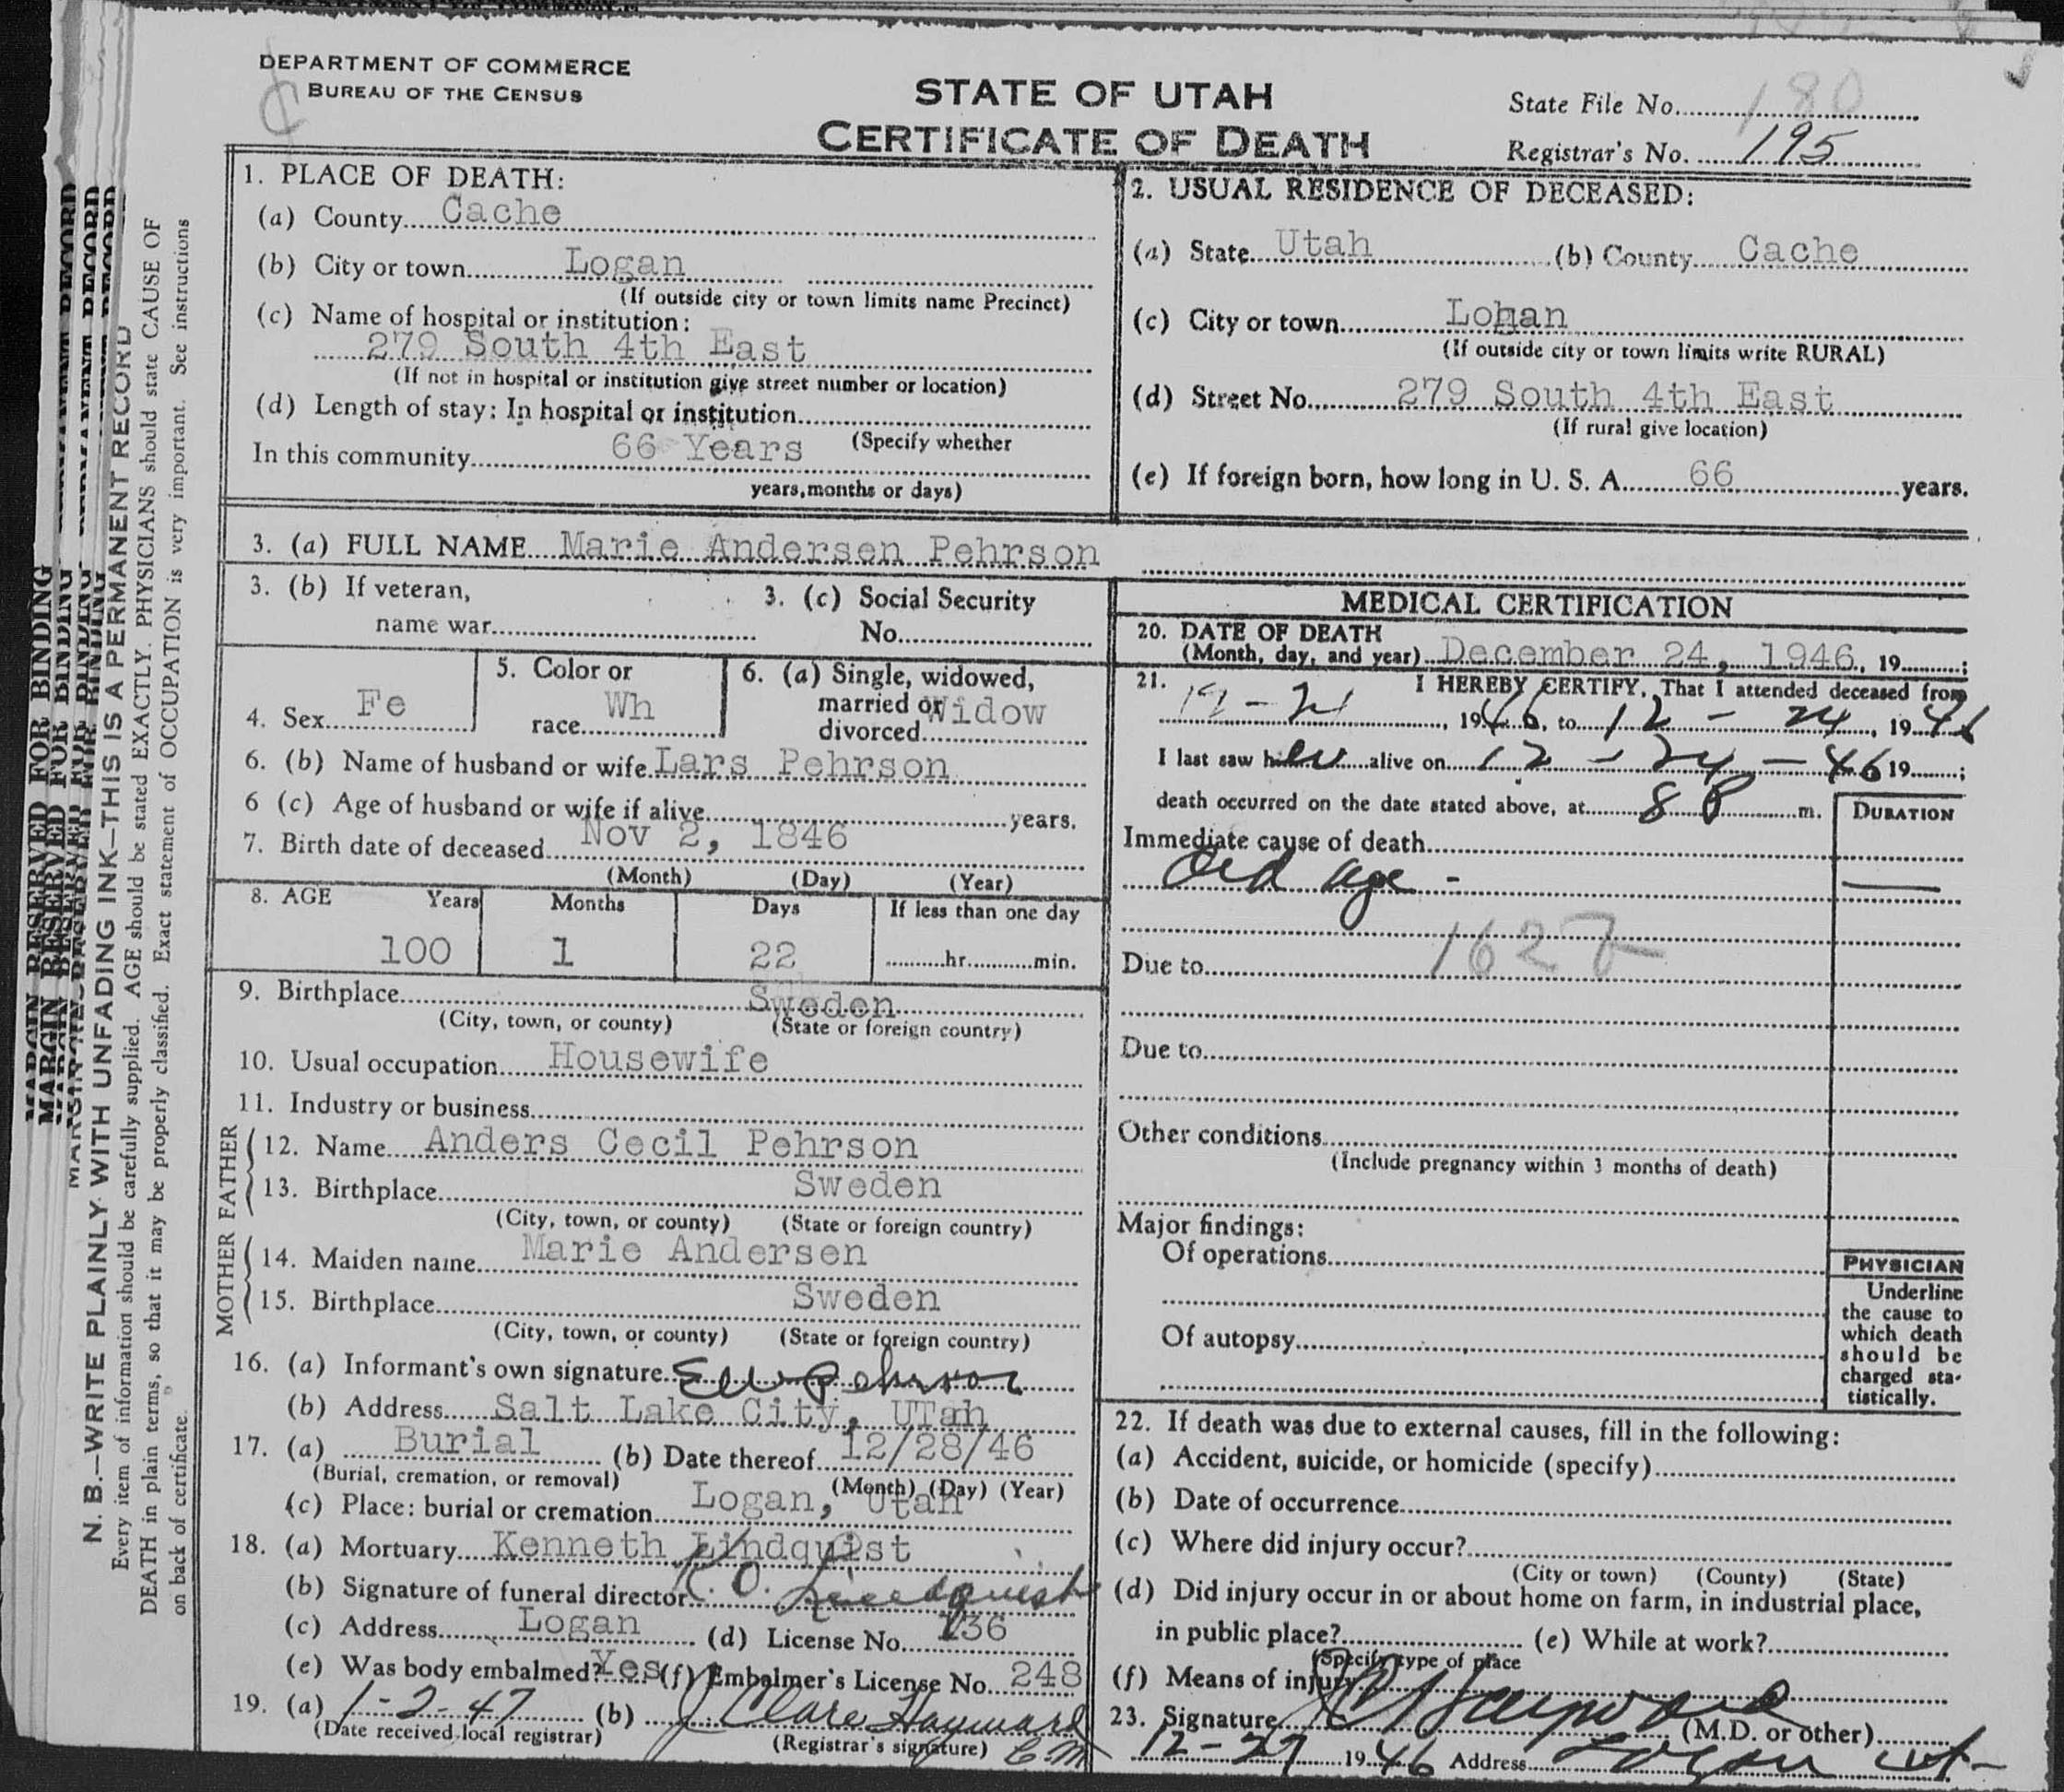 DEPARTMENT OF COMMERCE
BUREAU OF THE CENSUS
STATE OF UTAH
CERTIFICATE OF DEATH
State File No. 180
Registrar's No. 195
1. PLACE OF DEATH:
(a) County Cache
(b) City or town Logan
(If outside city or town limits name Precinct)
(c) Name of hospital or institution:
279 South 4th East
(If not in hospital or institution give street number or location)
(d) Length of stay: In hospital or institution
(Specify whether
In this community 66 Years
years, months or days)
2. USUAL RESIDENCE OF DECEASED:
(a) State Utah (b) County Cache
(c) City or town Lohan
(If outside city or town limits write RURAL)
(d) Street No. 279 South 4th East
(If rural give location)
(e) If foreign born, how long in U. S. A. 66 years.
3. (a) FULL NAME Marie Andersen Pehrson
3. (b) If veteran,
name war
3. (c) Social Security
No.
4. Sex Fe
5. Color or
race Wh
6. (a) Single, widowed,
married or
divorced Widow
6. (b) Name of husband or wife Lars Pehrson
6 (c) Age of husband or wife if alive years.
7. Birth date of deceased Nov 2, 1846
(Month) (Day) (Year)
8. AGE Years Months Days If less than one day
100 1 22 hr. min.
9. Birthplace Sweden
(City, town, or county) (State or foreign country)
10. Usual occupation Housewife
11. Industry or business
FATHER
12. Name Anders Cecil Pehrson
13. Birthplace Sweden
(City, town, or county) (State or foreign country)
MOTHER
14. Maiden name Marie Andersen
15. Birthplace Sweden
(City, town, or county) (State or foreign country)
16. (a) Informant's own signature E W Pehrson
(b) Address Salt Lake City, UTah
17. (a) Burial (b) Date thereof 12/28/46
(Burial, cremation, or removal) (Month) (Day) (Year)
(c) Place: burial or cremation Logan, Utah
18. (a) Mortuary Kenneth Lindquist
(b) Signature of funeral director K. O. Lindquist
(c) Address Logan (d) License No. 136
(e) Was body embalmed? Yes (f) Embalmer's License No. 248
19. (a) 1-2-47 (b) J Clare Hayward
(Date received local registrar) (Registrar's signature)
MEDICAL CERTIFICATION
20. DATE OF DEATH
(Month, day, and year) December 24, 1946, 19 ;
21. I HEREBY CERTIFY, That I attended deceased from
12-21, 1946, to 12 - 24, 1946
I last saw her alive on 12 - 24 - 46 19 ;
death occurred on the date stated above, at 8 P m.
DURATION
Immediate cause of death
Old age -
162
Due to
Due to
Other conditions
(Include pregnancy within 3 months of death)
Major findings:
Of operations
Of autopsy
PHYSICIAN
Underline
the cause to
which death
should be
charged sta-
tistically.
22. If death was due to external causes, fill in the following:
(a) Accident, suicide, or homicide (specify)
(b) Date of occurrence
(c) Where did injury occur?
(City or town) (County) (State)
(d) Did injury occur in or about home on farm, in industrial place,
in public place? (e) While at work?
(Specify type of place
(f) Means of injury
23. Signature Hayward (M.D. or other)
12-27 1946 Address Logan Ut
MARGIN RESERVED FOR BINDING
N. B.—WRITE PLAINLY WITH UNFADING INK—THIS IS A PERMANENT RECORD
Every item of information should be carefully supplied. AGE should be stated EXACTLY. PHYSICIANS should state CAUSE OF
DEATH in plain terms, so that it may be properly classified. Exact statement of OCCUPATION is very important. See instructions
on back of certificate.